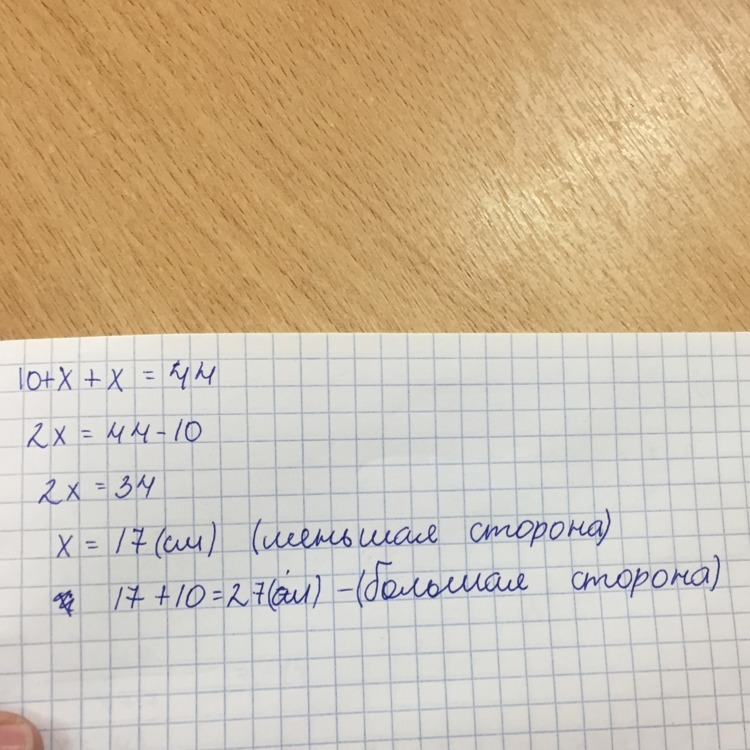 10+x + x = 44
2x = 44-10
2x = 34
x = 17 (см) (меньшая сторона)
17 + 10 = 27 (см) - (большая сторона)